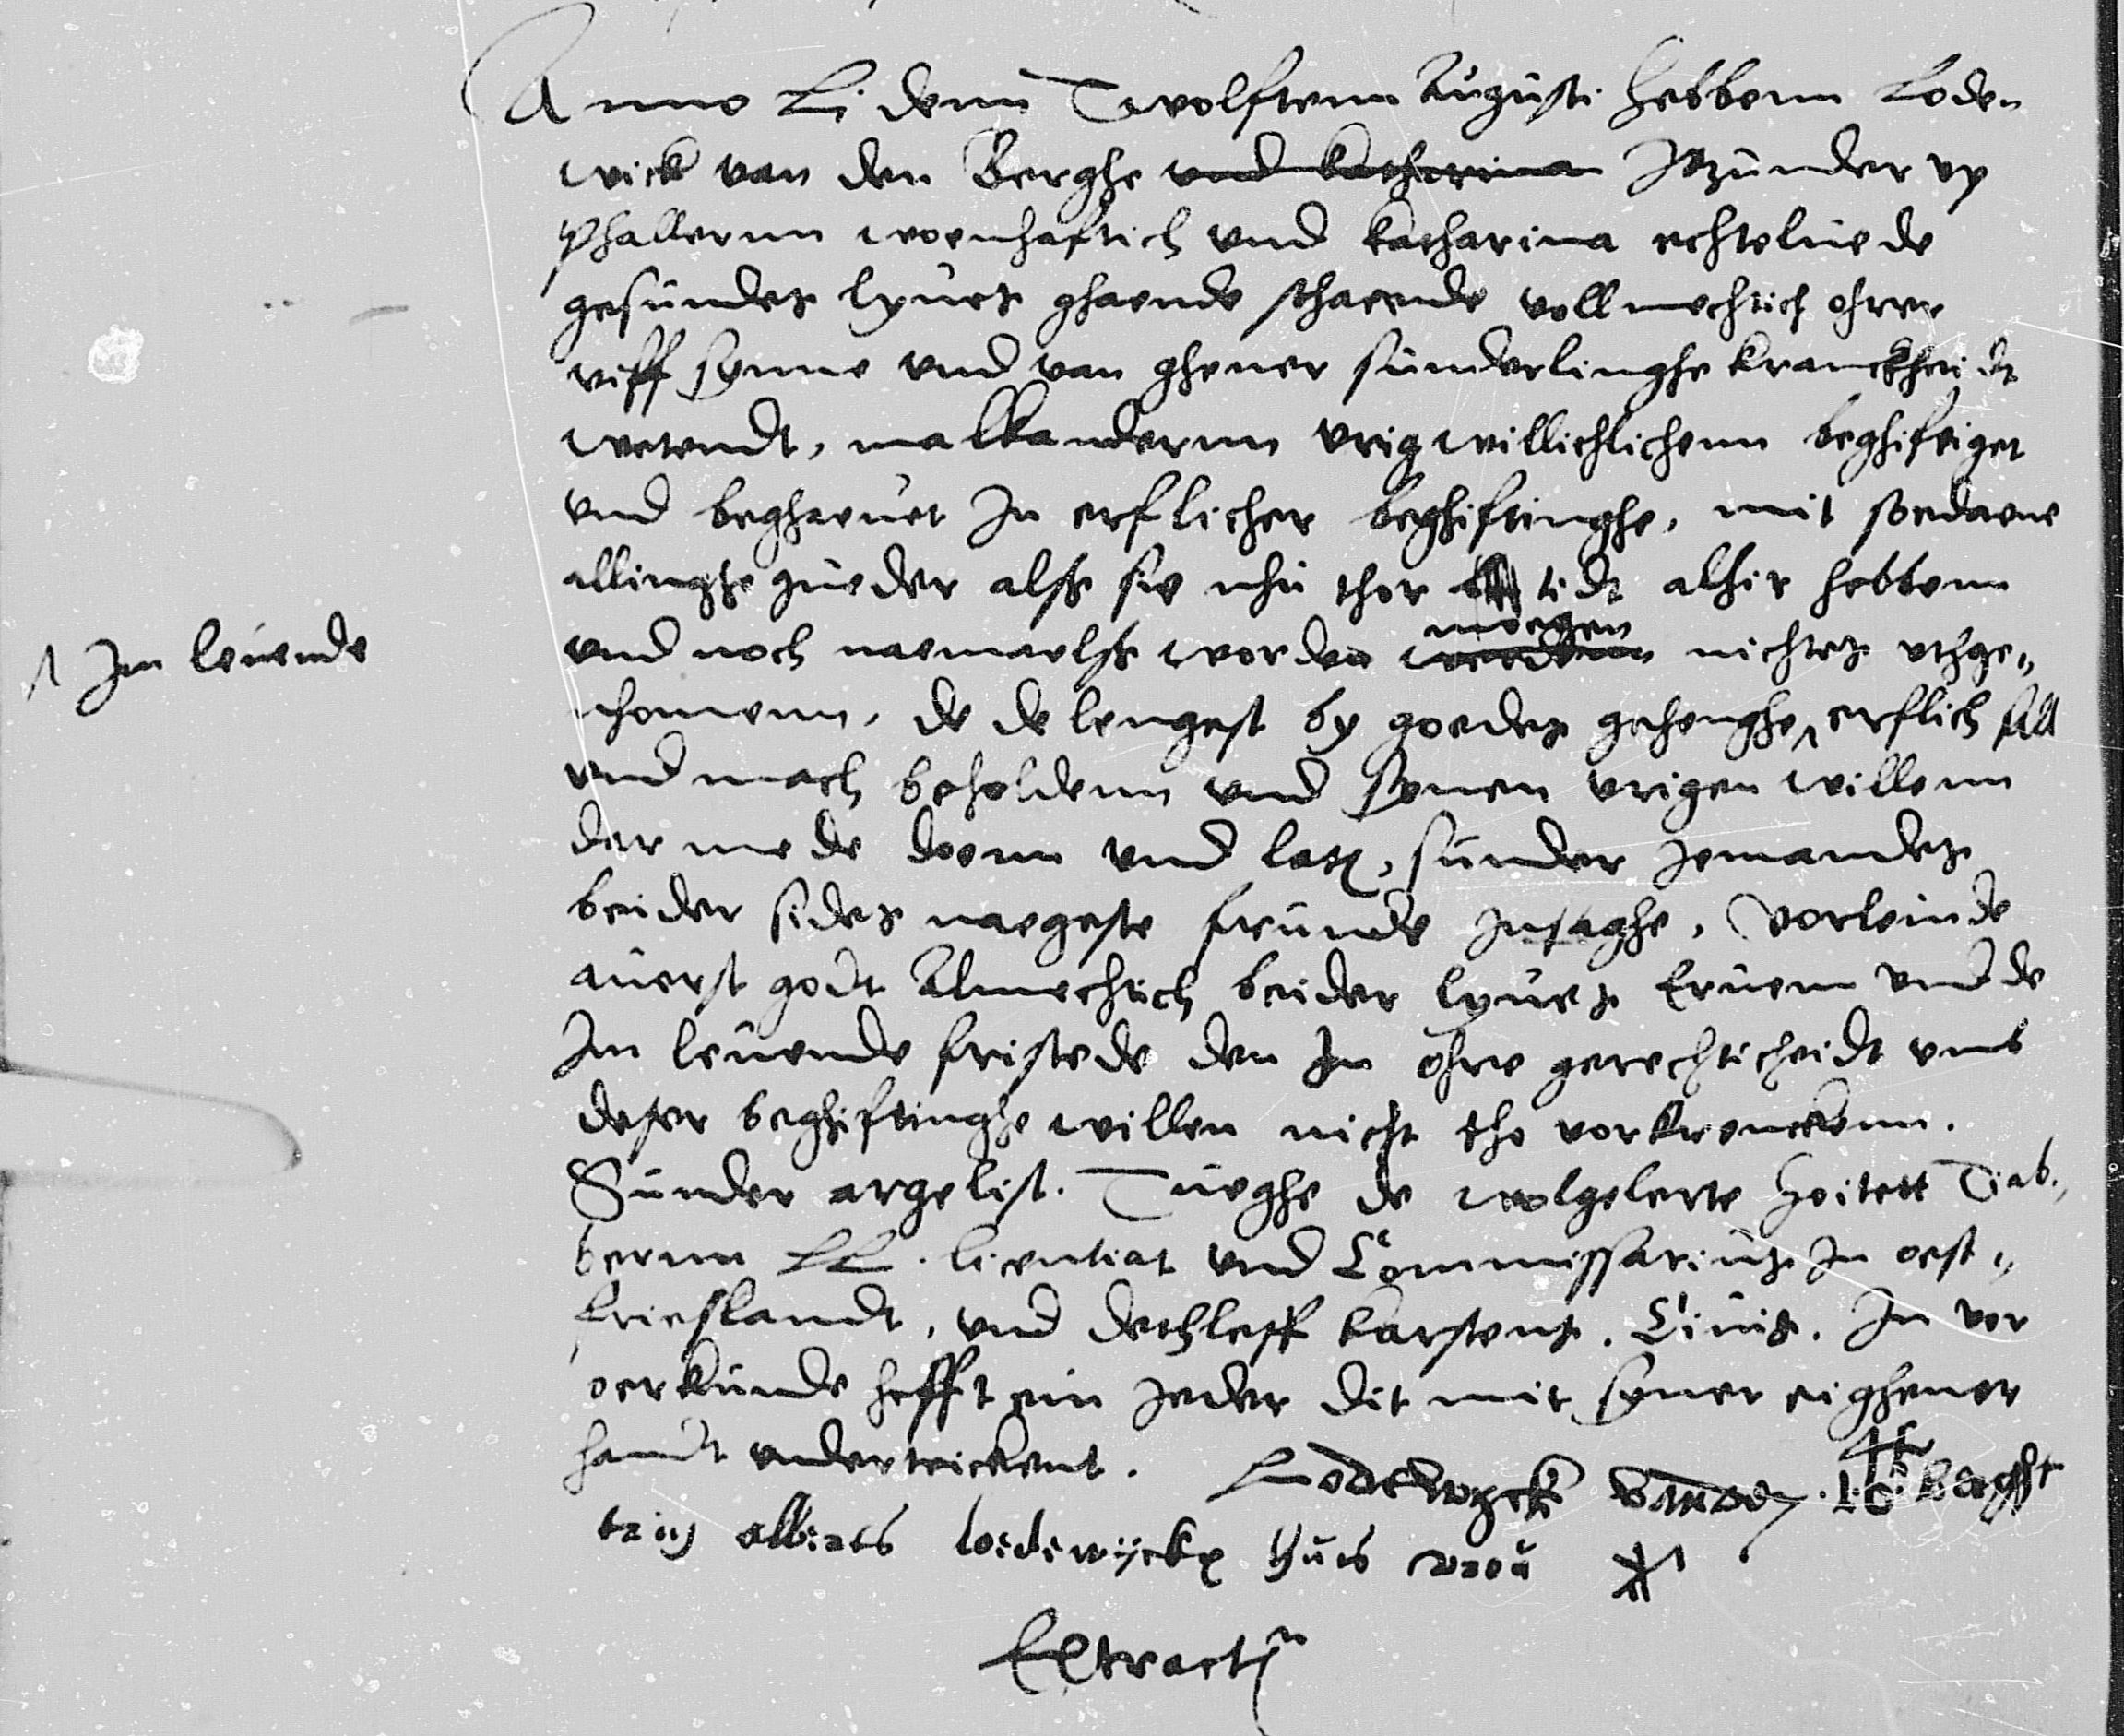 Anno Li denn Twolftenn Augusti hebbenn Lode„
wick van den Berghe und Katharina Itzunder up
Phallernn woenhaftich und Katharina echteluede
gesundes lyues ghaende sthaende vollmechtich ohrer
viff synne und van ghener sunderlinghe kranckheidt
wetendt, malkandernn vrigwillichlichenn beghiftiget
und beghaeuet In erflicher beghiftinghe, mit soedaene
allinghe gueder alse sie nhu thor tidt alhir hebbenn
und noch naemaelss worden werdenn moegen nichtes uthge„
nhomenn, de de lengest by goedes gehenghe erflich sall
Im leuende
und mach beholdenn und synen vrigen willenn
dar mede doenn und laten, sunder Jemandes
beider sides naegeste frunde Insaghe, Vorleinde
auerst godt Almechtich beider lyues Eruenn und de
Im leuende fristede den In ohre gerechticheidt umb
deser beghiftinghe willen nicht tho vorkrenckenn.
Sunder argelist. Tueghe de wolgelerte Hoitett Tiab„
bernn LL. licentiat und Commissarius In oest„
frieslandt, und dethleff Karstens. Ciuis. In vor
oerkunde hefft ein Jeder dit mit syner eighener
handt underteickent. Lodewyck vanden berghe
triin albiats lodewijckx huis vrou
Extractum